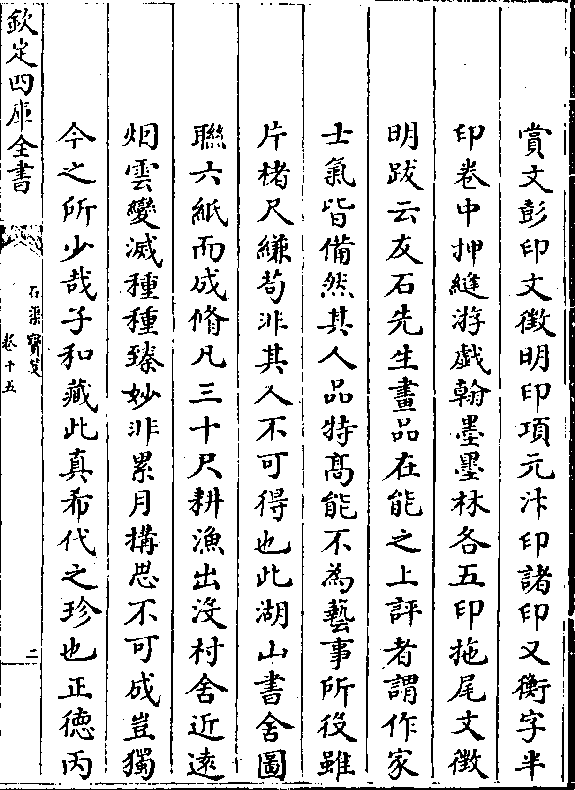 賞文彭印文徵明印項元汴印諸印又衡字半
印卷中押縫游戲翰墨墨林各五印拖尾文徵
明跋云友石先生畫品在能之上評者謂作家
士氣皆備然其人品特髙能不為藝事所役雖
片楮尺縑苟非其人不可得也此湖山書舍圖
聯六紙而成脩凡三十尺耕漁出沒村舍近逺
烟雲變滅種種臻妙非累月構思不可成豈獨
今之所少哉子和藏此真希代之珍也正徳丙
欽定四庫全書
石渠寳笈
卷十五
二